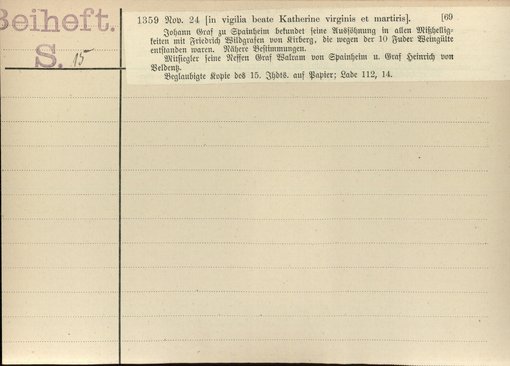 Beiheft.
S. 15
1359 Nov. 24 [in vigilia beate Katherine virginis et martiris]. [69
Johann Graf zu Spainheim bekundet seine Aussöhnung in allen Mißhellig-
keiten mit Friedrich Wildgrafen von Kirberg, die wegen der 10 Fuder Weingülte
entstanden waren. Nähere Bestimmungen.
Mitsiegler seine Neffen Graf Walram von Spainheim u. Graf Heinrich von
Veldentz.
Beglaubigte Kopie des 15. Jhdts. auf Papier; Lade 112, 14.